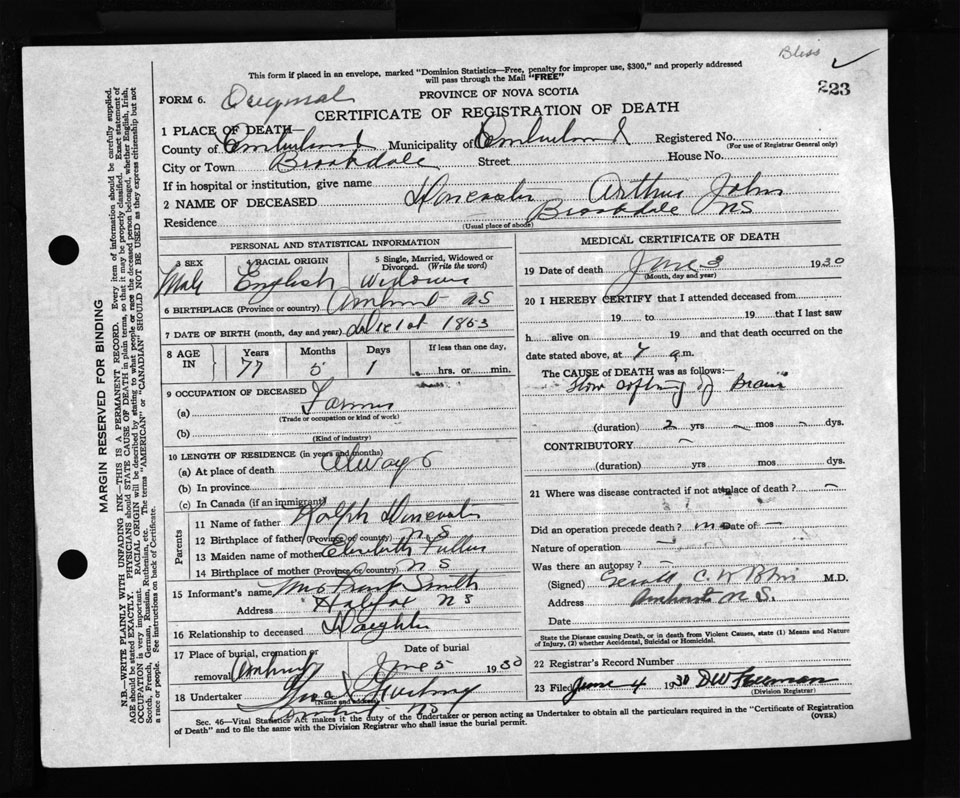 Bliss
This form if placed in an envelope, marked "Dominion Statistics—Free, penalty for improper use, $300," and properly addressed
will pass through the Mail "FREE"
223
FORM 6. Original
PROVINCE OF NOVA SCOTIA
CERTIFICATE OF REGISTRATION OF DEATH
1 PLACE OF DEATH—
County of Cumberland Municipality of Cumberland Registered No.
(For use of Registrar General only)
City or Town Brookdale Street House No.
If in hospital or institution, give name
2 NAME OF DECEASED Doncaster Arthur John
Residence Brookdale NS
(Usual place of abode)
PERSONAL AND STATISTICAL INFORMATION
3 SEX 4 RACIAL ORIGIN 5 Single, Married, Widowed or Divorced. (Write the word)
Male English Widower
6 BIRTHPLACE (Province or country) Amherst NS
7 DATE OF BIRTH (month, day and year) 1853
8 AGE IN Years Months Days If less than one day,
77 5 1 hrs. or min.
9 OCCUPATION OF DECEASED
(a) Farmer
(Trade or occupation or kind of work)
(b)
(Kind of industry)
10 LENGTH OF RESIDENCE (in years and months)
(a) At place of death Always
(b) In province
(c) In Canada (if an immigrant)
Parents
11 Name of father Ralph Doncaster
12 Birthplace of father (Province or country) N S
13 Maiden name of mother Elizabeth Fuller
14 Birthplace of mother (Province or country) N S
15 Informant's name Mrs Frank Smith
Address Halifax NS
16 Relationship to deceased Daughter
17 Place of burial, cremation or removal Amherst
Date of burial June 5 1930
18 Undertaker
(Name and address)
Amherst NS
MEDICAL CERTIFICATE OF DEATH
19 Date of death June 3 1930
(Month, day and year)
20 I HEREBY CERTIFY that I attended deceased from
19 to 19 that I last saw
h alive on 19 and that death occurred on
date stated above, at 4 a.m.
The CAUSE of DEATH was as follows:—
Slow softning of Brain
(duration) 2 yrs — mos — dys.
CONTRIBUTORY —
(duration) yrs mos dys.
21 Where was disease contracted if not at place of death? —
Did an operation precede death? no Date of —
Nature of operation —
Was there an autopsy? —
(Signed) M.D.
Address Amherst N.S.
Date
State the Disease causing Death, or in death from Violent Causes, state (1) Means and Nature
of Injury, (2) whether Accidental, Suicidal or Homicidal.
22 Registrar's Record Number
23 Filed June 4 1930 DW Freeman
(Division Registrar)
Sec. 46—Vital Statistics Act makes it the duty of the Undertaker or person acting as Undertaker to obtain all the particulars required in the "Certificate of Registration
of Death" and to file the same with the Division Registrar who shall issue the burial permit. (OVER)
MARGIN RESERVED FOR BINDING
N.B.—WRITE PLAINLY WITH UNFADING INK—THIS IS A PERMANENT RECORD. Every item of information should be carefully supplied.
AGE should be stated EXACTLY. PHYSICIANS should STATE CAUSE OF DEATH in plain terms, so that it may be properly classified. Exact statement of
OCCUPATION is very important. RACIAL ORIGIN will be described by stating to what people or race the deceased person belonged, whether English, Irish,
Scotch, French, German, Russian, Ruthenian, etc. The terms "AMERICAN" or "CANADIAN" SHOULD NOT BE USED as they express citizenship but not
a race or people. See instructions on back of Certificate.